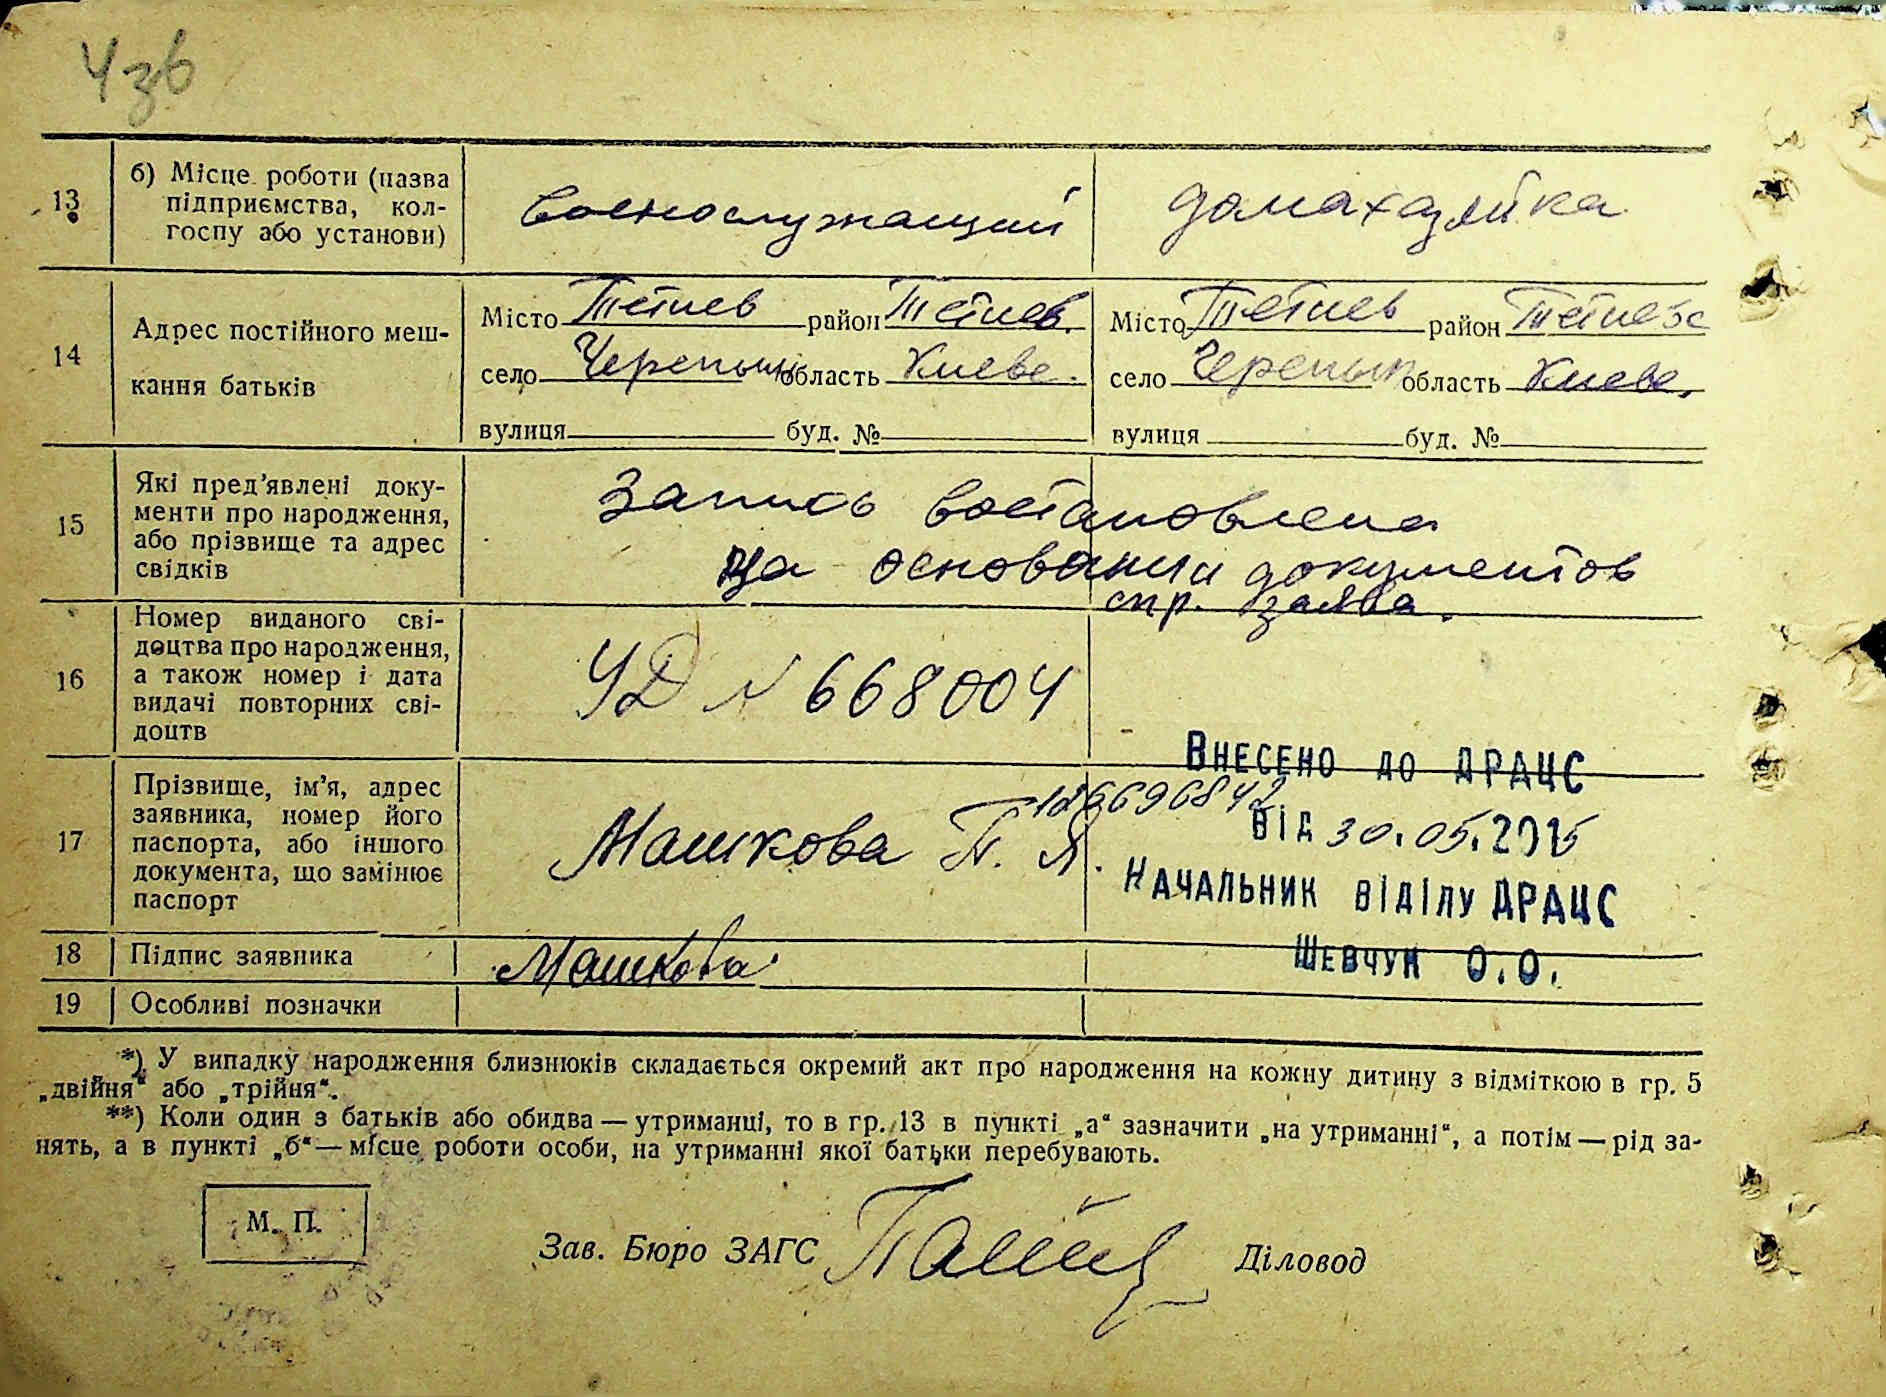 4зв
13 б) Місце роботи (назва підприємства, кол-
госпу або установи)
военослужащий
домахазяйка
14 Адрес постійного меш-
кання батьків
Місто Тетиев район Тетиев.
село Черепын область Киевс.
вулиця буд. №
Місто Тетиев район Тетиевс
село Черепын область Киевс.
вулиця буд. №
15 Які пред’явлені доку-
менти про народження,
або прізвище та адрес
свідків
Запись востановлена
на основании документов
спр. заява.
16 Номер виданого сві-
доцтва про народження,
а також номер і дата
видачі повторних сві-
доцтв
УД N 668004
17 Прізвище, ім’я, адрес
заявника, номер його
паспорта, або іншого
документа, що замінює
паспорт
Машкова П. Я.
Внесено до ДРАЦС
126696842
від 30.05.2015
Начальник відділу ДРАЦС
Шевчук О.О.
18 Підпис заявника
Машкова
19 Особливі позначки
*) У випадку народження близнюків складається окремий акт про народження на кожну дитину з відміткою в гр. 5
„двійня“ або „трійня“.
**) Коли один з батьків або обидва — утриманці, то в гр. 13 в пункті „а“ зазначити „на утриманні“, а потім — рід за-
нять, а в пункті „б“ — місце роботи особи, на утриманні якої батьки перебувають.
М. П.
Зав. Бюро ЗАГС
Діловод